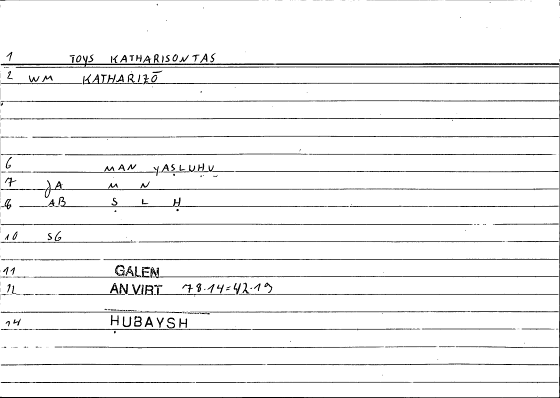 1 TOYS KATHARISONTAS
2 WM KATHARIZŌ
6 MAN YAṢLUḤU
7 JA M N
8 AB Ṣ L Ḥ
10 SG
11 GALEN
12 AN VIRT 78.14=42.19
14 ḤUBAYSH